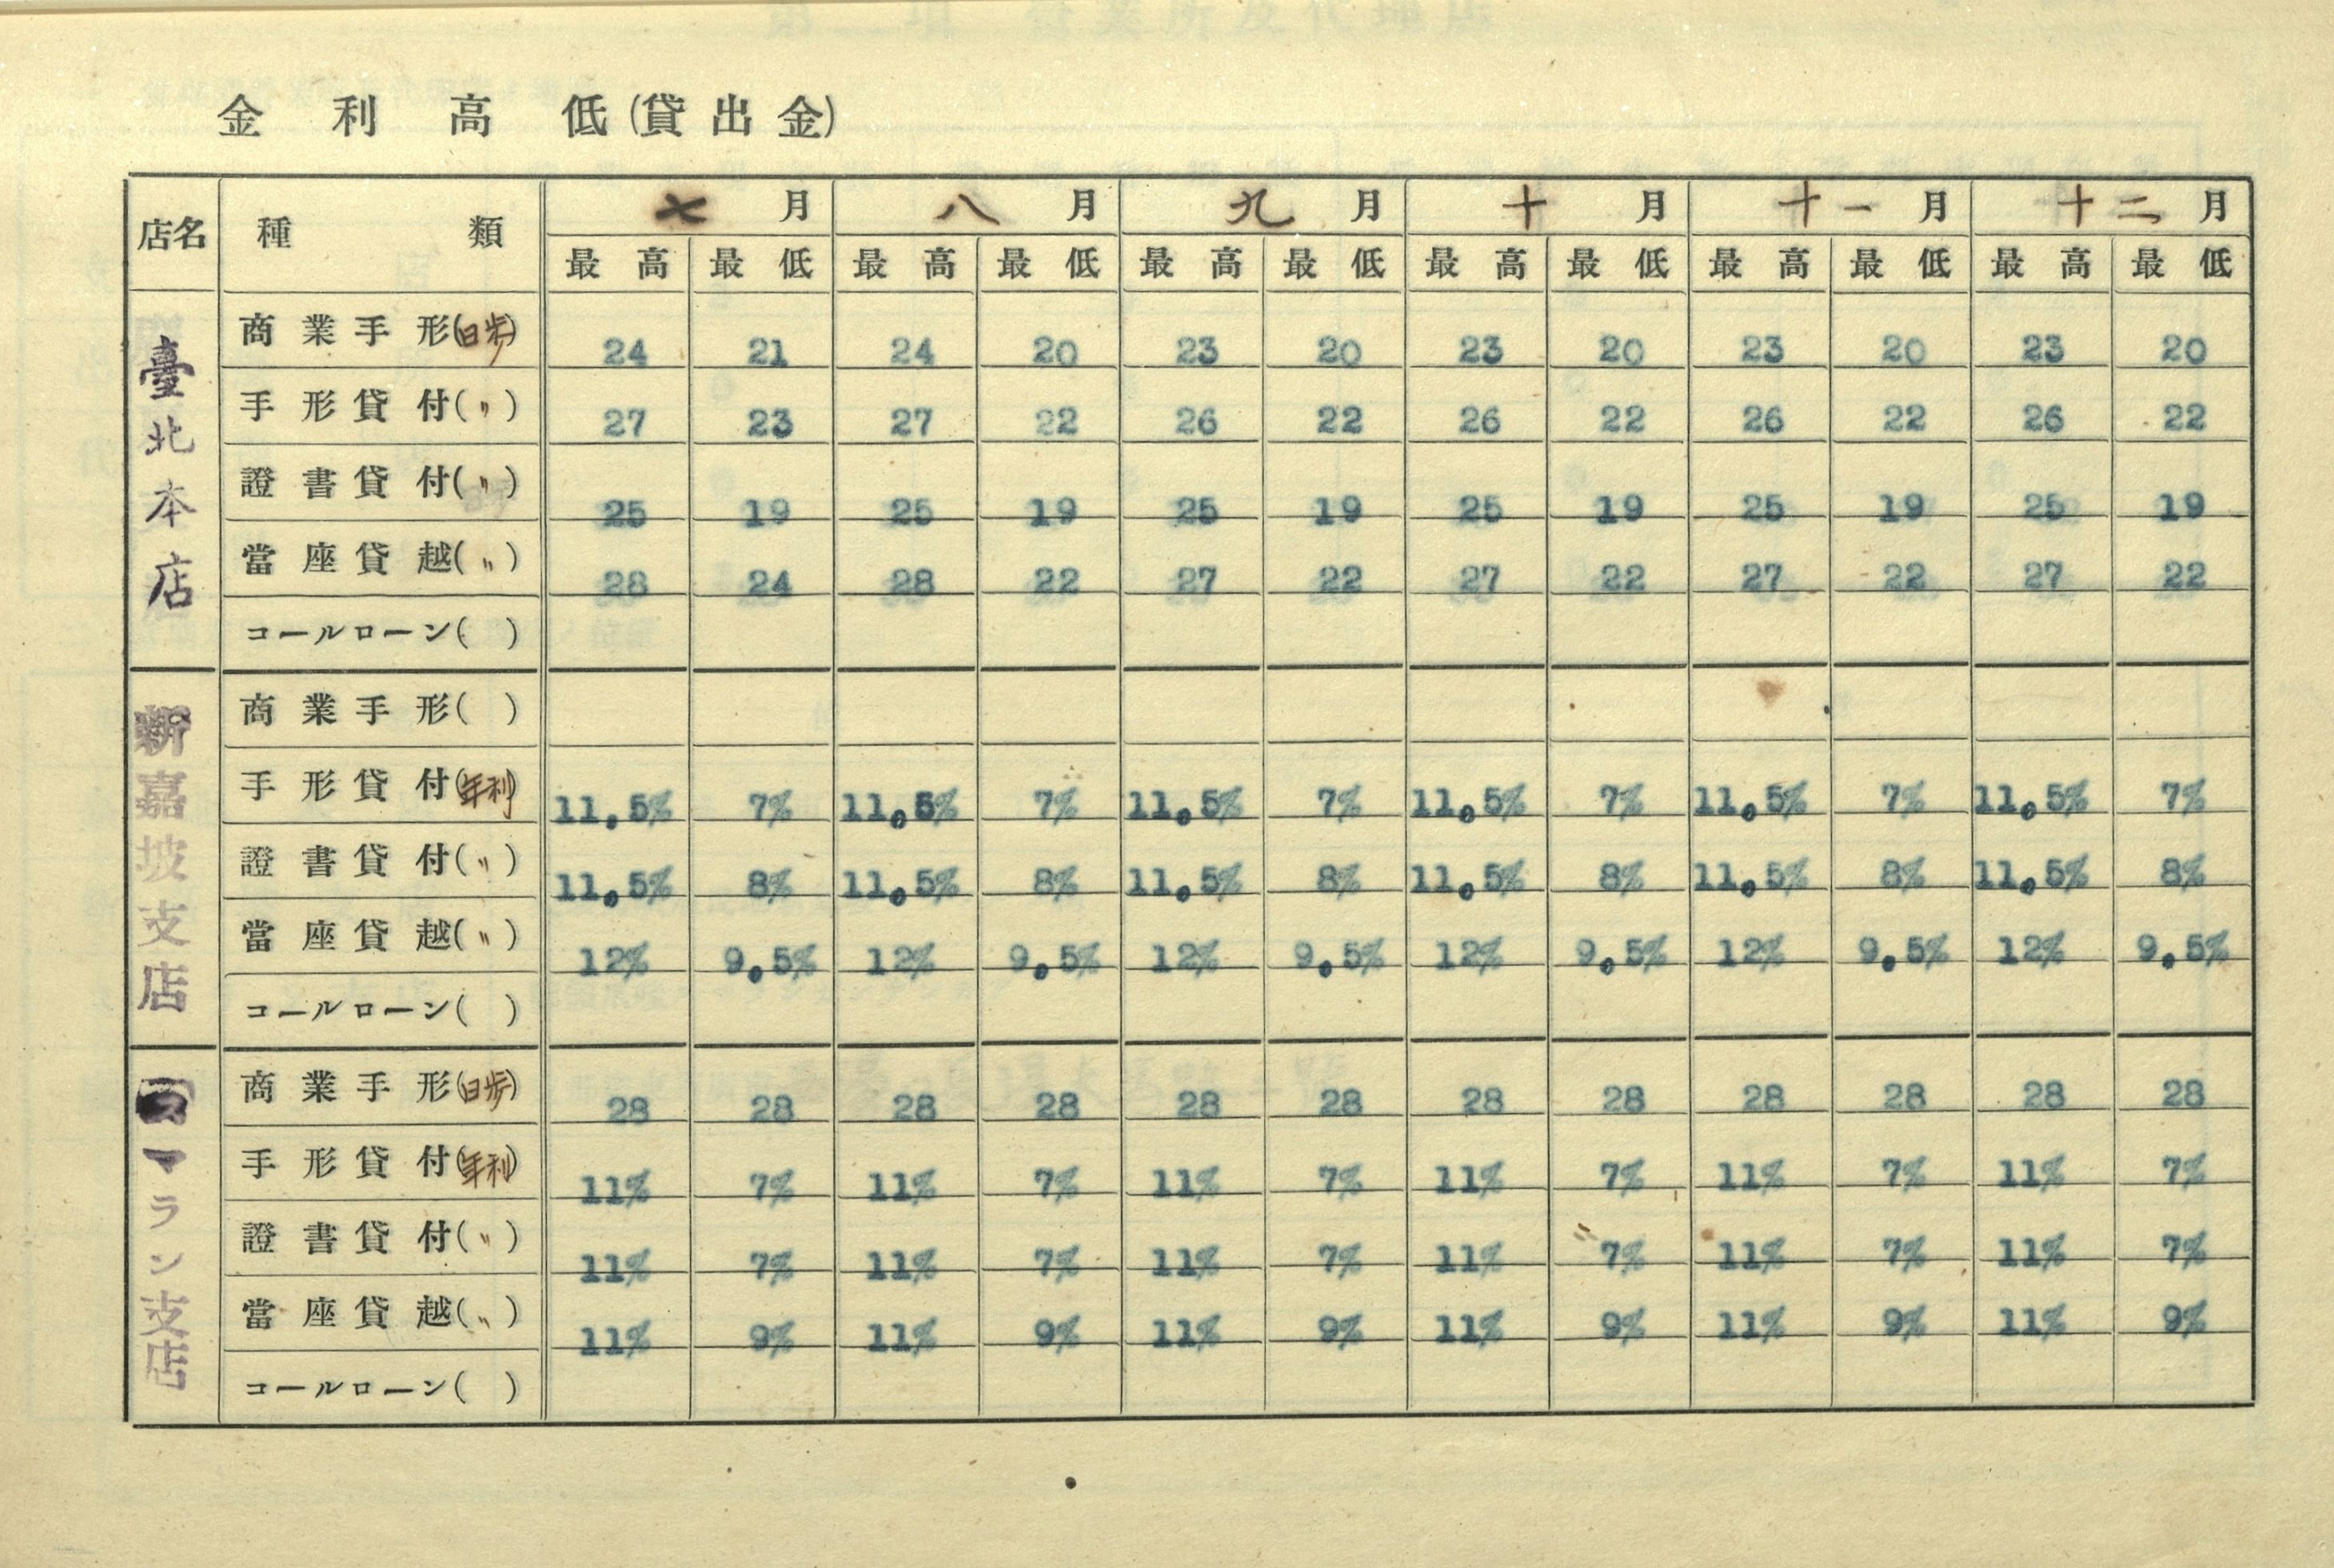 金利高低(貸出金)
店名 種類 七月 八月 九月 十月 十一月 十二月
最高 最低 最高 最低 最高 最低 最高 最低 最高 最低 最高 最低
臺北本店
商業手形(日歩) 24 21 24 20 23 20 23 20 23 20 23 20
手形貸付(〃) 27 23 27 22 26 22 26 22 26 22 26 22
證書貸付(〃) 25 19 25 19 25 19 25 19 25 19 25 19
當座貸越(〃) 28 24 28 22 27 22 27 22 27 22 27 22
コールローン( )
新嘉坡支店
商業手形( )
手形貸付(年利) 11.5% 7% 11.5% 7% 11.5% 7% 11.5% 7% 11.5% 7% 11.5% 7%
證書貸付(〃) 11.5% 8% 11.5% 8% 11.5% 8% 11.5% 8% 11.5% 8% 11.5% 8%
當座貸越(〃) 12% 9.5% 12% 9.5% 12% 9.5% 12% 9.5% 12% 9.5% 12% 9.5%
コールローン( )
マラン支店
商業手形(日歩) 28 28 28 28 28 28 28 28 28 28 28 28
手形貸付(年利) 11% 7% 11% 7% 11% 7% 11% 7% 11% 7% 11% 7%
證書貸付(〃) 11% 7% 11% 7% 11% 7% 11% 7% 11% 7% 11% 7%
當座貸越(〃) 11% 9% 11% 9% 11% 9% 11% 9% 11% 9% 11% 9%
コールローン( )